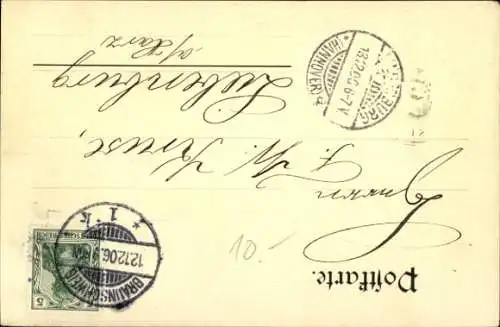 Postkarte.
Herrn
F. W. Krause,
Liebenburg
a/Harz
BRAUNSCHWEIG
12.12.06.
* 1 k *
5
(HANNOVER)
13.12.06. 6-7 V
10.-